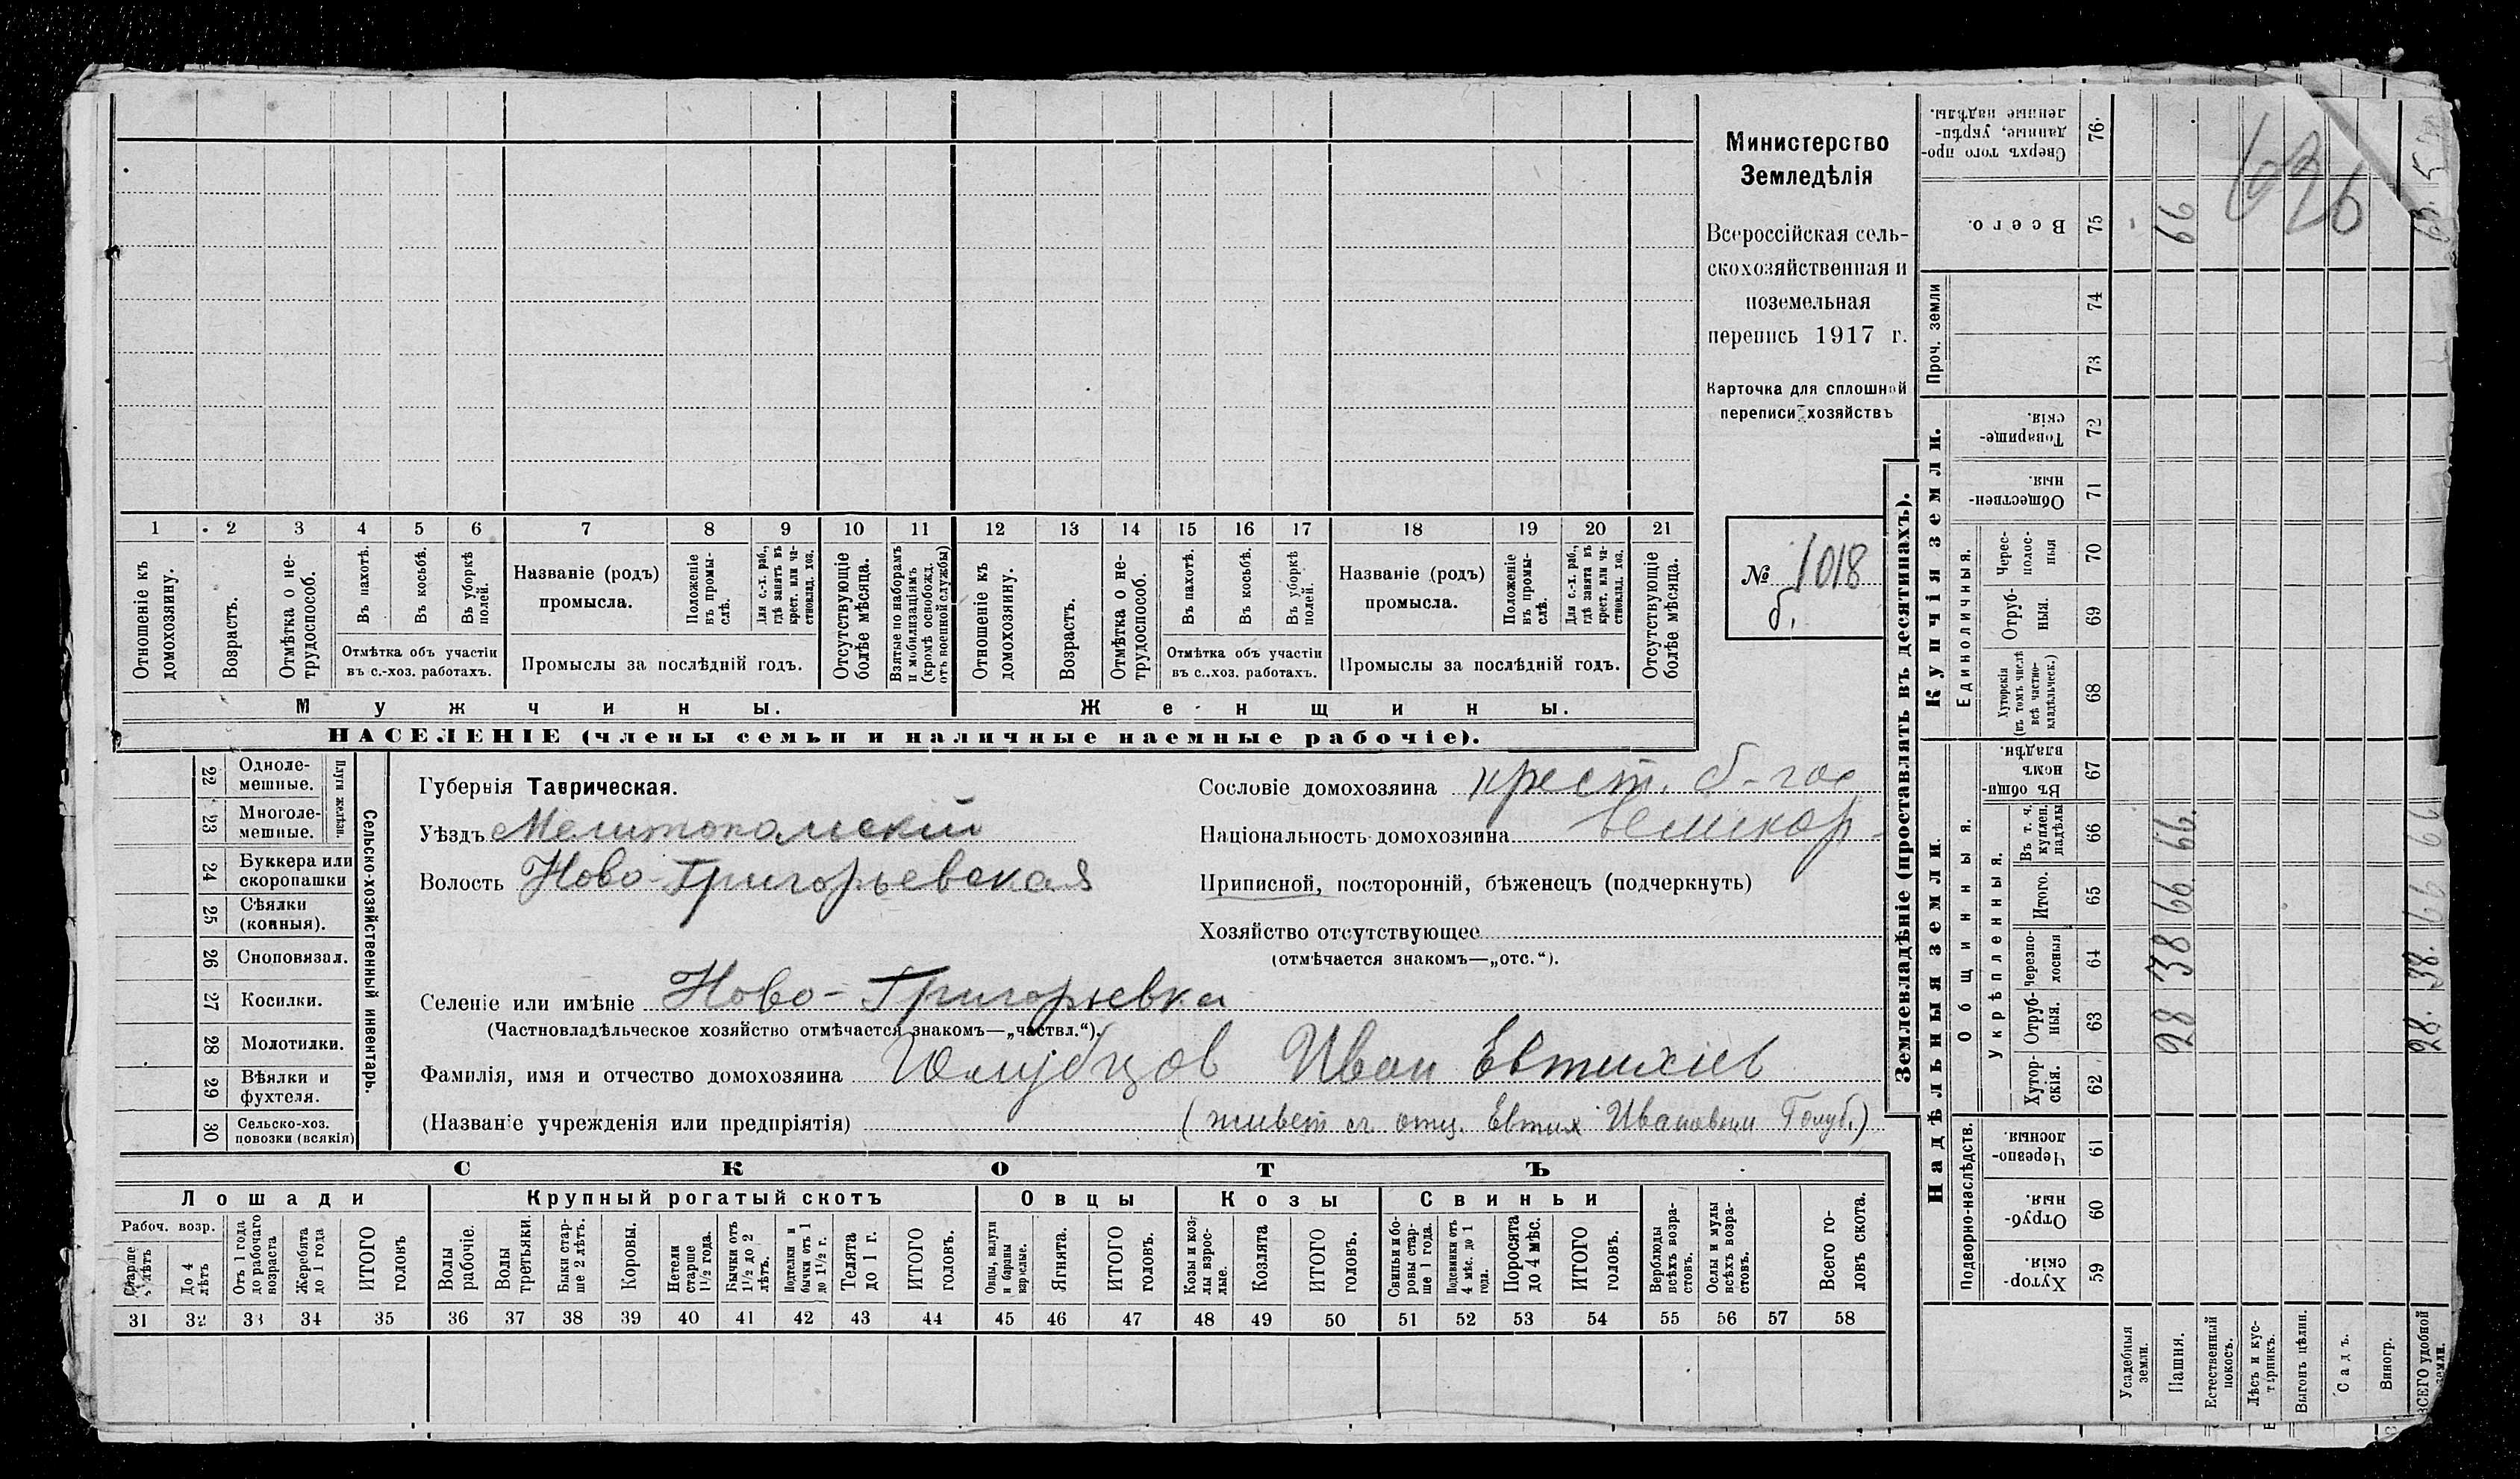 Министерство
Земледѣлія
Всероссійская сель-
скохозяйственная и
поземельная
перепись 1917 г.
Карточка для сплошной
переписи хозяйствъ
№ 1018
б,
1 2 3 4 5 6 7 8 9 10 11 12 13 14 15 16 17 18 19 20 21
Отношеніе къ домохозяину.
Возрастъ.
Отмѣтка о не-трудоспособ.
Въ пахотѣ.
Въ косьбѣ.
Въ уборкѣ полей.
Отмѣтка объ участіи
въ с.-хоз. работахъ.
Названіе (родъ)
промысла.
Положеніе въ промы-слѣ.
Для с.-х. раб., гдѣ занятъ въ крест. или ча-стновлад. хоз.
Промыслы за послѣдній годъ.
Отсутствующіе болѣе мѣсяца.
Взятые по наборамъ и мобилизаціямъ (кромѣ освобожд. отъ военной службы)
Отношеніе къ домохозяину.
Возрастъ.
Отмѣтка о не-трудоспособ.
Въ пахотѣ.
Въ косьбѣ.
Въ уборкѣ полей.
Отмѣтка объ участіи
въ с.-хоз. работахъ.
Названіе (родъ)
промысла.
Положеніе въ промы-слѣ.
Для с.-х. раб., гдѣ занята въ крест. или ча-стновлад. хоз.
Промыслы за послѣдній годъ.
Отсутствующіе болѣе мѣсяца.
Мужчины.
Женщины.
НАСЕЛЕНІЕ (члены семьи и наличные наемные рабочіе).
22 Одноле-мешные.
23 Многоле-мешные.
Плуги желѣзн.
24 Буккера или скоропашки
25 Сѣялки (конныя).
26 Сноповязал.
27 Косилки.
28 Молотилки.
29 Вѣялки и фухтеля.
30 Сельско-хоз. повозки (всякія)
Сельско-хозяйственный инвентарь.
Губернія Таврическая.
Уѣздъ Мелитопольскій
Волость Ново-Григорьевская
Селеніе или имѣніе Ново-Григорьевка
(Частновладѣльческое хозяйство отмѣчается знакомъ—„частвл.“).
Фамилія, имя и отчество домохозяина Голубцов Иван Евтихіев
(Названіе учрежденія или предпріятія) (живет съ отц. Евтих Ивановым Голуб.)
Сословіе домохозяина крест. б-гос
Національность домохозяина великор.
Приписной, посторонній, бѣженец (подчеркнуть)
Хозяйство отсутствующее
(отмѣчается знакомъ—„отс.“).
СКОТЪ
Лошади
Крупный рогатый скотъ
Овцы
Козы
Свиньи
Рабоч. возр.
Старше 4 лѣтъ
До 4 лѣтъ
Отъ 1 года до рабочаго возраста
Жеребята до 1 года
ИТОГО головъ
Волы рабочіе.
Волы третьяки.
Быки стар-ше 2 лѣтъ.
Коровы.
Нетели старше 1½ года.
Бычки отъ 1½ до 2 лѣтъ.
Подтелки и бычки отъ 1 до 1½ г.
Телята до 1 г.
ИТОГО головъ.
Овцы, валухи и бараны взрослые.
Ягнята.
ИТОГО головъ.
Козы и коз-лы взрос-лые.
Козлята
ИТОГО головъ.
Свиньи и бо-ровы стар-ше 1 года.
Подсвинки отъ 4 мѣс. до 1 года.
Поросята до 4 мѣс.
ИТОГО головъ.
Верблюды всѣхъ возра-стовъ.
Ослы и мулы всѣхъ возра-стовъ.
Всего го-ловъ скота.
31 32 33 34 35 36 37 38 39 40 41 42 43 44 45 46 47 48 49 50 51 52 53 54 55 56 57 58
Землевладѣніе (проставлять въ десятинахъ).
Надѣльныя земли.
Купчія земли.
Проч. земли
Подворно-наслѣдств.
Общинныя.
Укрѣпленныя.
Единоличныя.
Хутор-скія. 59
Отруб-ныя. 60
Черезпо-лосныя 61
Хутор-скія. 62
Отруб-ныя. 63
Черезпо-лосныя 64
Итого. 65
Въ т. ч. куплен. надѣлы 66
Въ общи-номъ владѣн. 67
Хуторскія (въ томъ числѣ всѣ частно-владѣльческ.) 68
Отруб-ныя. 69
Черес-полос-ныя 70
Обществен-ныя. 71
Товарище-скія. 72
73
74
Всего. 75
Сверхъ того про-данные, укрѣп-ленные надѣлы. 76.
Усадебныя земли.
Пашня. 28 38 66. 66. 66
Естественный покосъ.
Лѣсъ и кус-тарникъ.
Выгонъ цѣлин.
Садъ.
Виногр.
ВСЕГО удобной земли. 28. 38. 66 66
626